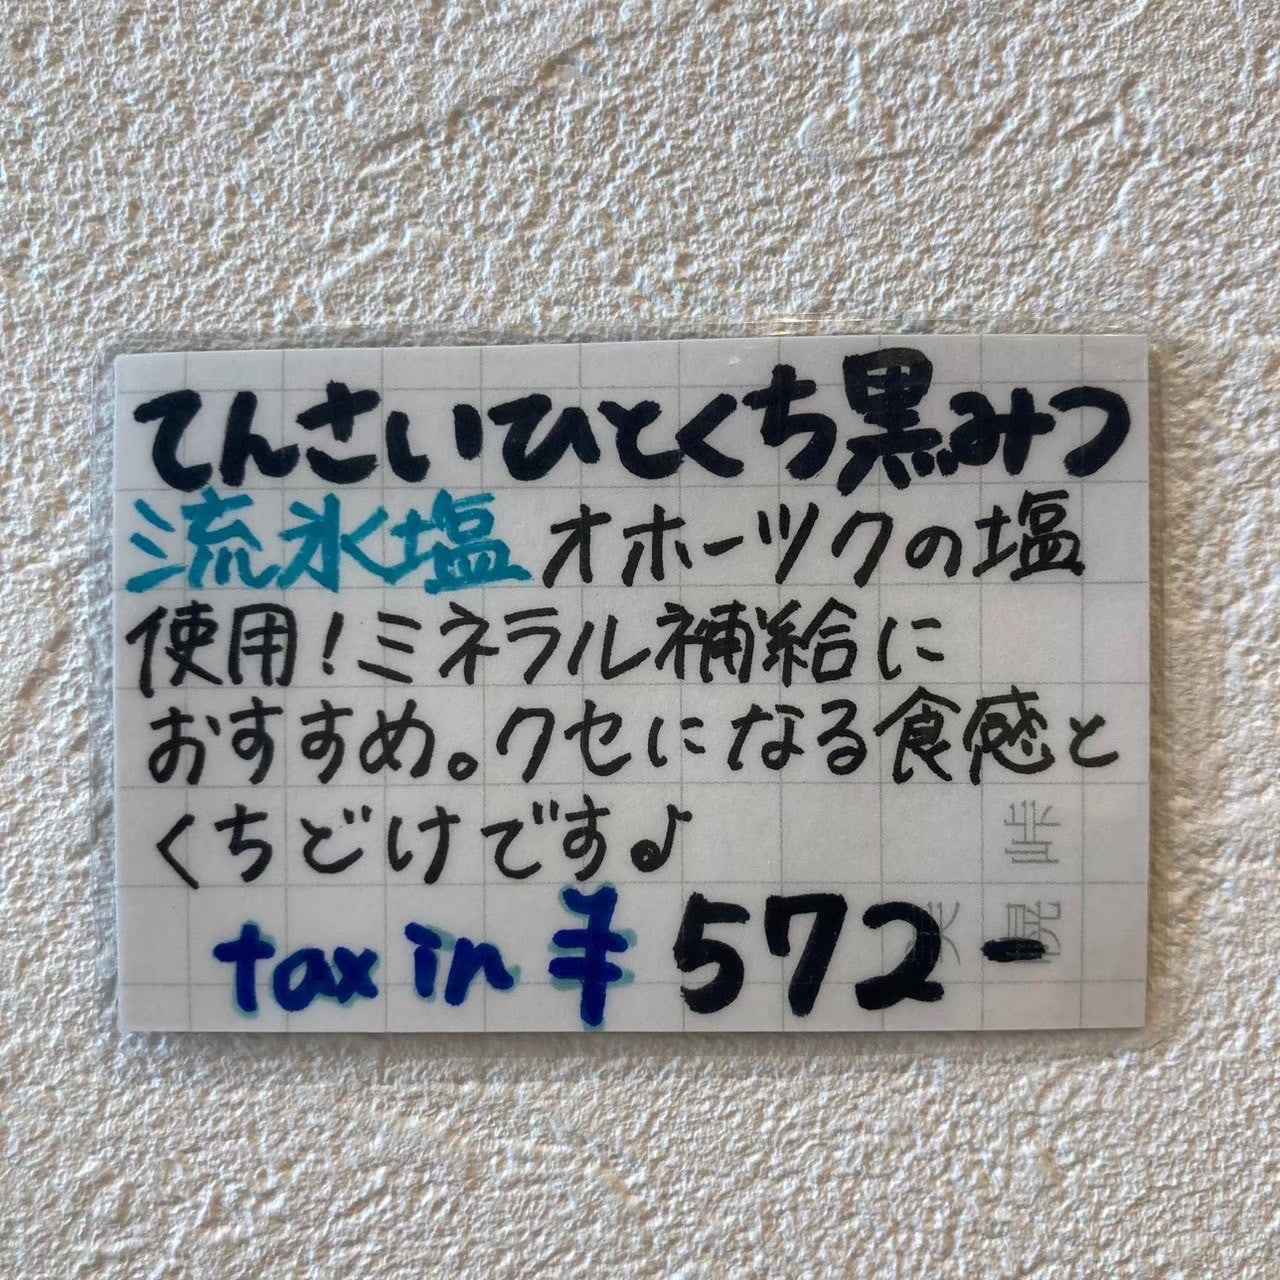 てんさいひとくち黒みつ
流氷塩 オホーツクの塩
使用！ミネラル補給に
おすすめ。クセになる食感と
くちどけです♪
tax in ¥572-